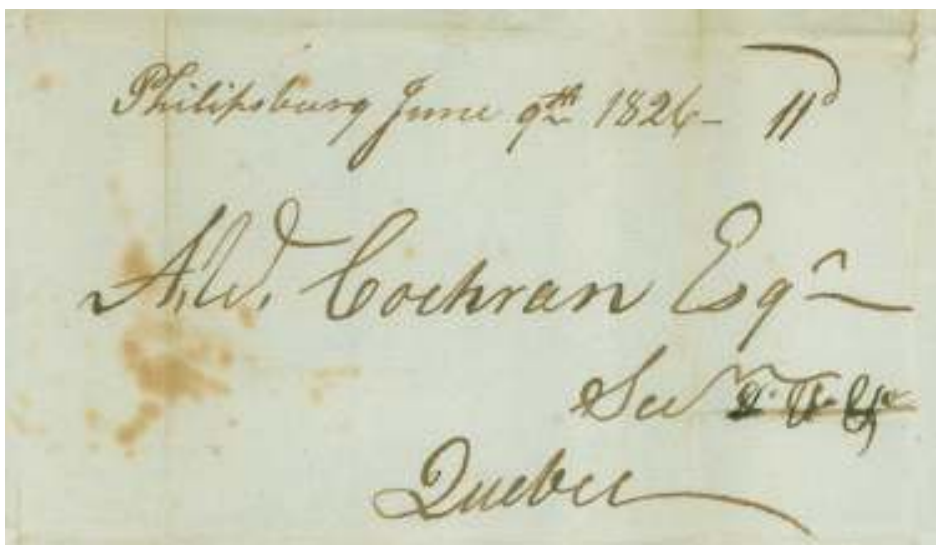 Philipsburg June 9th 1826 - 11d
A.W. Cochran Esqr
Secy
Quebec